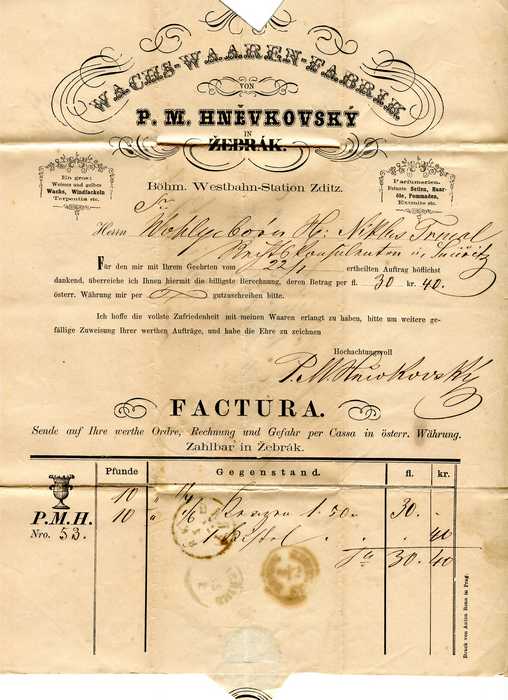 WACHS-WAAREN-FABRIK
VON
P. M. HNĚVKOVSKÝ
IN
ŽEBRÁK.
En gros:
Weisses und gelbes
Wachs, Windfackeln
Terpentin etc.
Parfumerien.
Feinste Seifen, Haar-
öle, Pommaden,
Extraite etc.
Böhm. Westbahn-Station Zditz.
Sr
Herrn Wohlgeboren H:
Für den mir mit Ihrem Geehrten vom 22/1 ertheilten Auftrag höflichst
dankend, überreiche ich Ihnen hiermit die billigste Berechnung, deren Betrag per fl. 30 kr. 40.
österr. Währung mir per gutzuschreiben bitte.
Ich hoffe die vollste Zufriedenheit mit meinen Waaren erlangt zu haben, bitte um weitere ge-
fällige Zuweisung Ihrer werthen Aufträge, und habe die Ehre zu zeichnen
Hochachtungsvoll
P.M. Hněvkovský
FACTURA.
Sende auf Ihre werthe Ordre, Rechnung und Gefahr per Cassa in österr. Währung.
Zahlbar in Žebrák.
Pfunde Gegenstand. fl. kr.
10
P. M. H. 10 1.50 30. -
Nro. 53. 1 40
30. 40
Druck von Anton Renn in Prag.